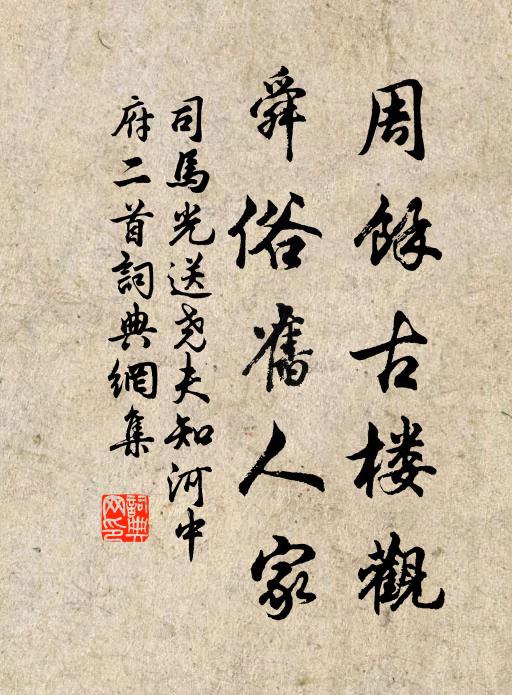 周餘古楼觀
舜俗舊人家
司馬光送尧夫知河中
府二首詞典網集
詞典
网印